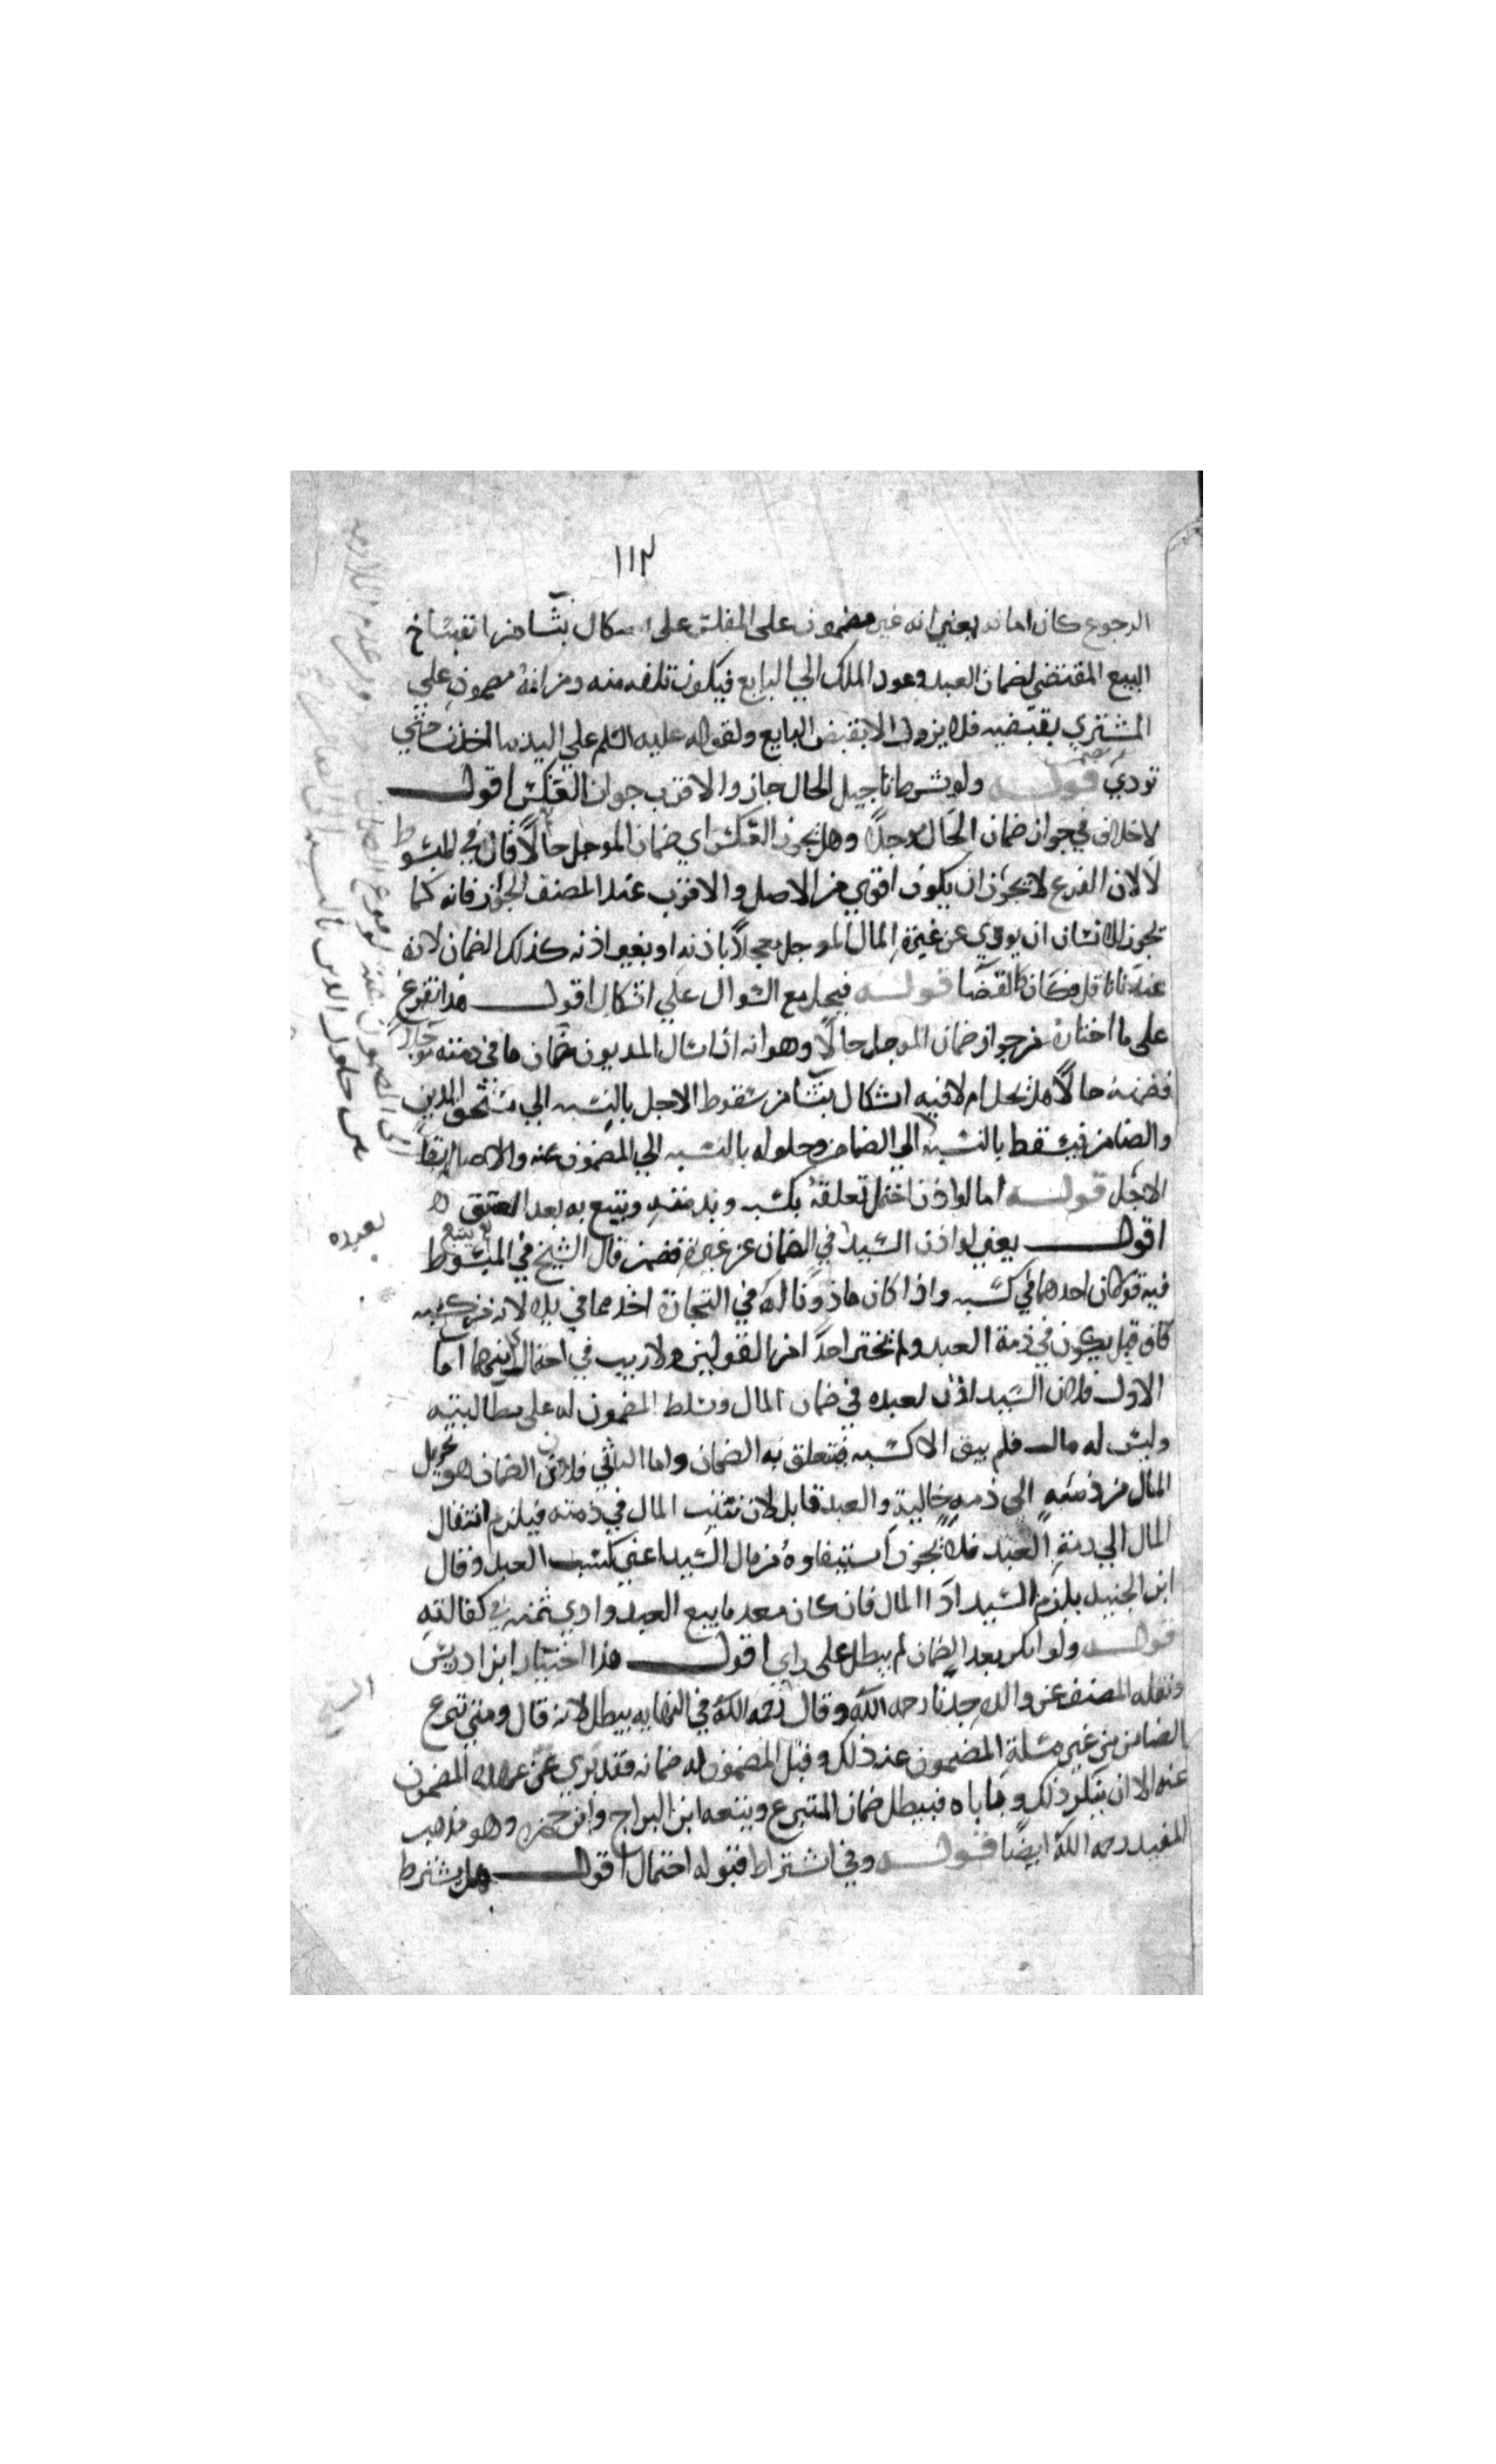 ١١٢
الرجوع كان امانة يعني انه غير مضمون على المفلس على اشكال ينشا من انفساخ
البيع المقتضي لضمان العبد وعود الملك الي البايع فيكون تلفه منه ومن انه مضمون علي
المشتري بقبضه فلا يزول الا بقبض البايع ولقوله عليه السلم علي اليد ما اخذت حتي
تودي قوله ولو شرط تاجيل الحال جاز والاقرب جواز العكس اقول
لا خلاف في جواز ضمان الحال موجلا وهل يجوز العكس اي ضمان الموجل حالا قال في المبسوط
لا لان الفرع لا يجوز ان يكون اقوي من الاصل والاقرب عند المصنف الجواز فانه كما
يجوز للانسان ان يودي عن غيره المال الموجل معجلا باذنه او بغير اذنه كذلك الضمان لانه
عندنا ناقل فكان كالقضا قوله فيحل مع السوال علي اشكال اقول هذا تفرع
على ما اختاره من جواز ضمان الموجل حالا وهو انه اذا سال المديون ضمان ما في ذمته موجلا
فضمنه حالا هل يحل ام لا فيه اشكال ينشا من سقوط الاجل بالنسبه الي مستحق الدين
والضامن فيسقط بالنسبة الي الضامن وحلوله بالنسبه الي المضمون عنه والاصل بقا
الاجل قوله اما لو اذن احتمل تعلقه بكسبه وبذمته ويتبع به بعد العتق
اقول يعني لو اذن السيد في الضمان عن غيره فضمن قال الشيخ في المبسوط
فيه قولان احدهما في كسبه واذا كان ماذونا له في التجارة اخذ مما في يده لانه من كسبه
كان وقيل يكون في ذمة العبد ولم يختر احدا من القولين ولا ريب في احتمال اما
الاول فلان السيد اذن لعبده في ضمان المال وتسلط المضمون له على مطالبته
وليس له مال فلم يبق الا كسبه فتعلق به الضمان واما الثاني فلان الضمان هو تحويل
المال من ذمته الى ذمة خالية والعبد قابل لان يثبت المال في ذمته فيلزم انتقال
المال الي ذمة العبد فلا يجوز استيفاوه من مال السيد اعني كسب العبد وقال
ابن الجنيد يلزم السيد ادا المال فان كان معدما يبع العبد وادي ثمنه في كفالته
قوله ولو انكر بعد الضمان لم يبطل على راي اقول هذا اختيار ابن ادريس
ونقله المصنف عن والده جدنا رحمه الله وقال رحمه الله في النهايه يبطل لانه قال ومتي تبرع
الضامن من غير مسلة المضمون عنه ذلك وقبل المضمون له ضمانه فقد بري عن عهدته المضمون
عنه الا ان ينكر ذلك وياباه فيبطل ضمان المتبرع وتبعه ابن البراج وابن حمزه وهو مذهب
المفيد رحمه الله ايضا قوله وفي اشتراط قبوله احتمال اقول هل يشترط
بعبده